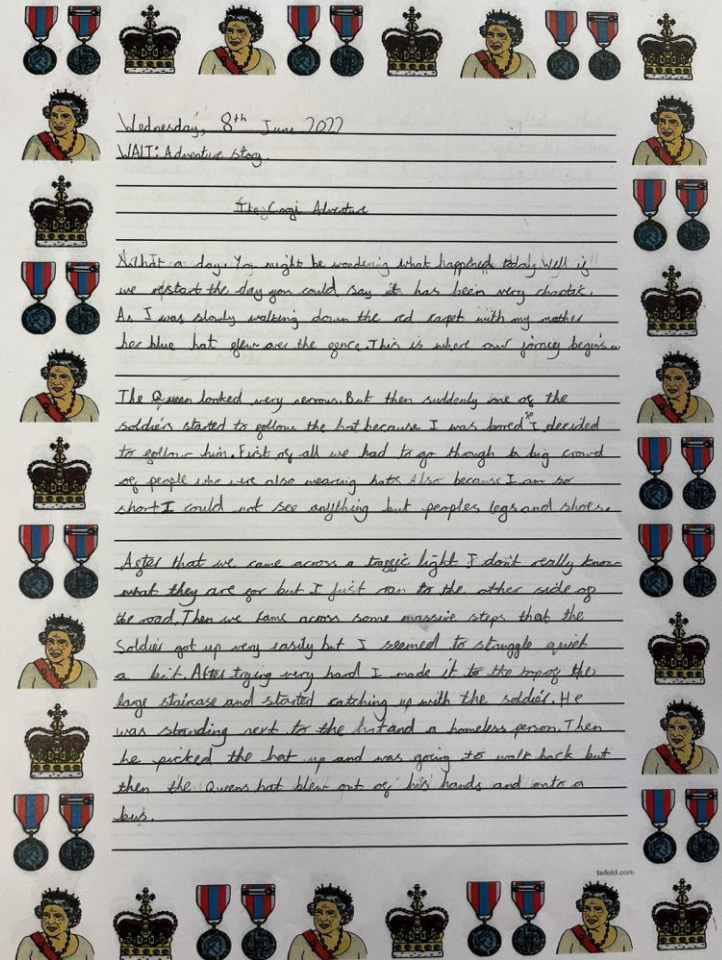 Wednesday, 8th June 2022
WALT: Adventure story.
The Corgi Adventure
What a day. You might be wondering what happened today. Well if
we restart the day you could say it has been very chaotic.
As I was slowly walking down the red carpet with my mother
her blue hat flew over the fence. This is where our jorney begins
The Queen looked very nervous. But then suddenly one of the
soldiers started to follow the hat because I was bored I decided
to follow him. First of all we had to go though a big crowd
of people who were also wearing hats Also because I am so
short I could not see anything but peoples legs and shoes.
After that we came across a traffic light I don't really know
what they are for but I just ran to the other side of
the road. Then we came across some massive steps that the
Soldier got up very easily but I seemed to struggle quiet
a bit. After trying very hard I made it to the top of the
large staircase and started catching up with the soldier. He
was standing next to the hat and a homeless person. Then
he picked the hat up and was going to walk back but
then the Queens hat blew out of his hands and onto a
bus.